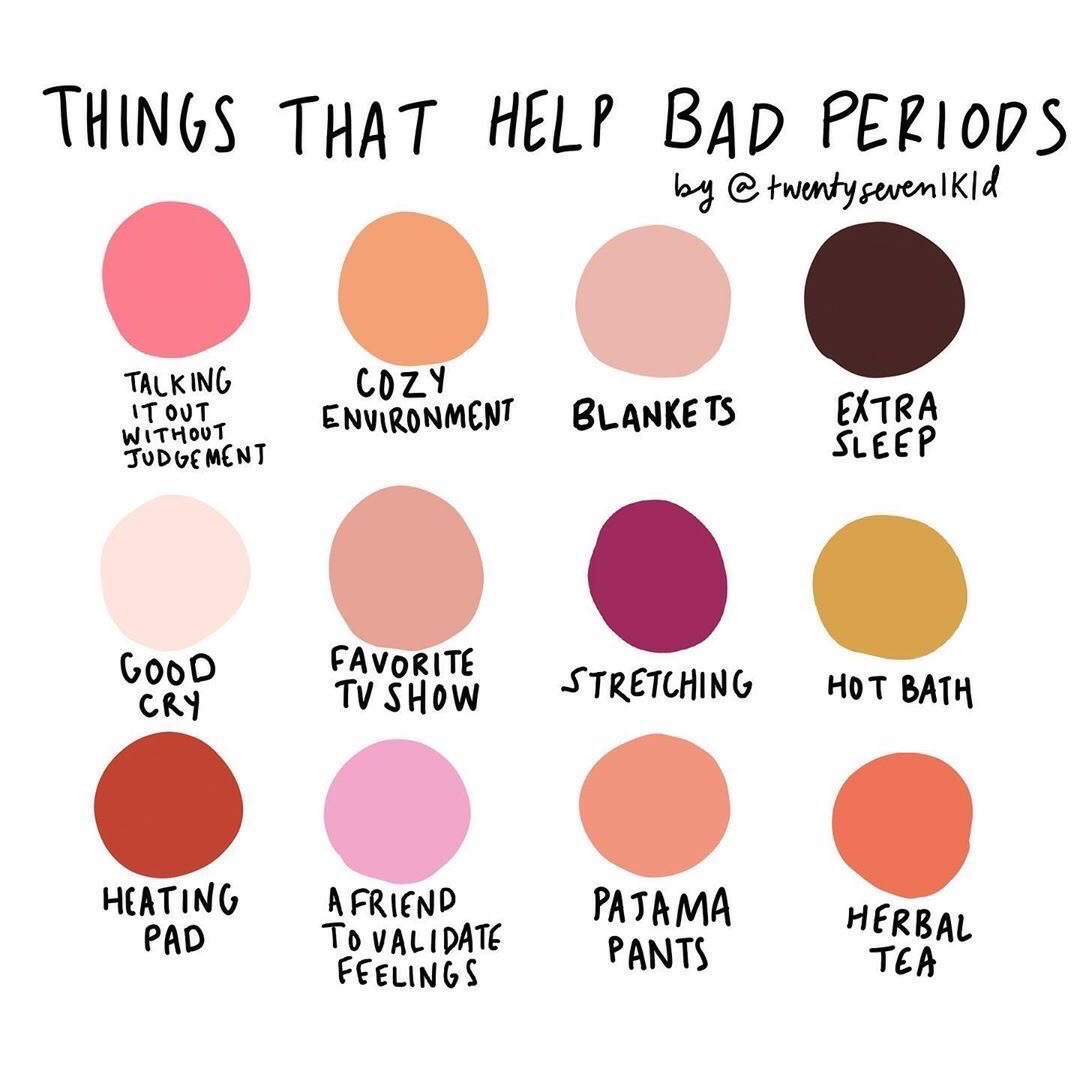 THINGS THAT HELP BAD PERIODS
by @twentyseven1K1d
TALKING
IT OUT
WITHOUT
JUDGEMENT
COZY
ENVIRONMENT
BLANKETS
EXTRA
SLEEP
GOOD
CRY
FAVORITE
TV SHOW
STRETCHING
HOT BATH
HEATING
PAD
A FRIEND
TO VALIDATE
FEELINGS
PAJAMA
PANTS
HERBAL
TEA